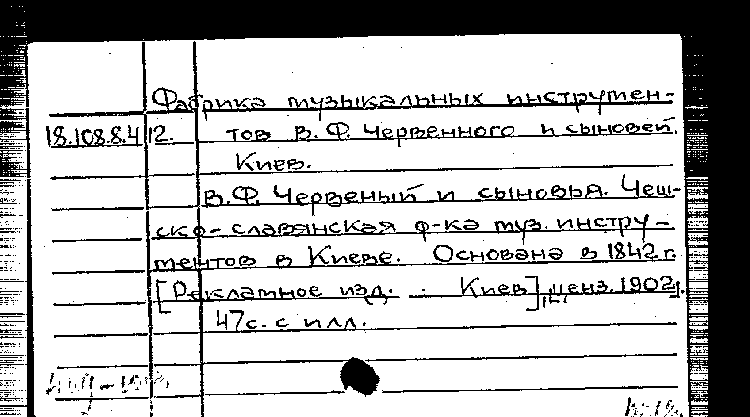 Фабрика музыкальных инструмен-
18.108.8.412. тов В.Ф. Червенного и сыновей.
Киев.
В.Ф. Червеный и сыновья. Чеш-
ско-славянская ф-ка муз. инстру-
ментов в Киеве. Основана в 1842 г.
[Рекламное изд. Киев], ценз. 1902г.
47с. с илл.